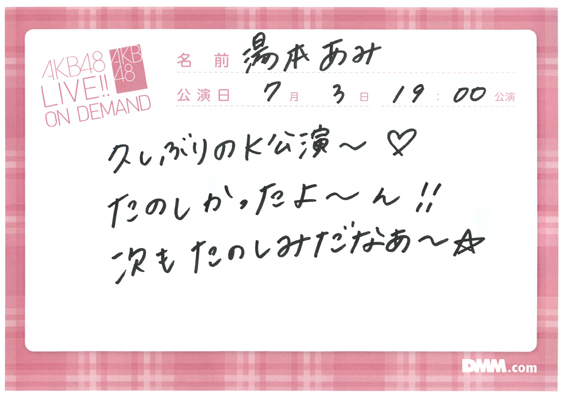 AKB48
LIVE!!
ON DEMAND
AKB
48
名前 湯本あみ
公演日 7月 3日 19:00 公演
久しぶりのK公演〜♡
たのしかったよ〜ん!!
次もたのしみだなあ〜☆
DMM.com